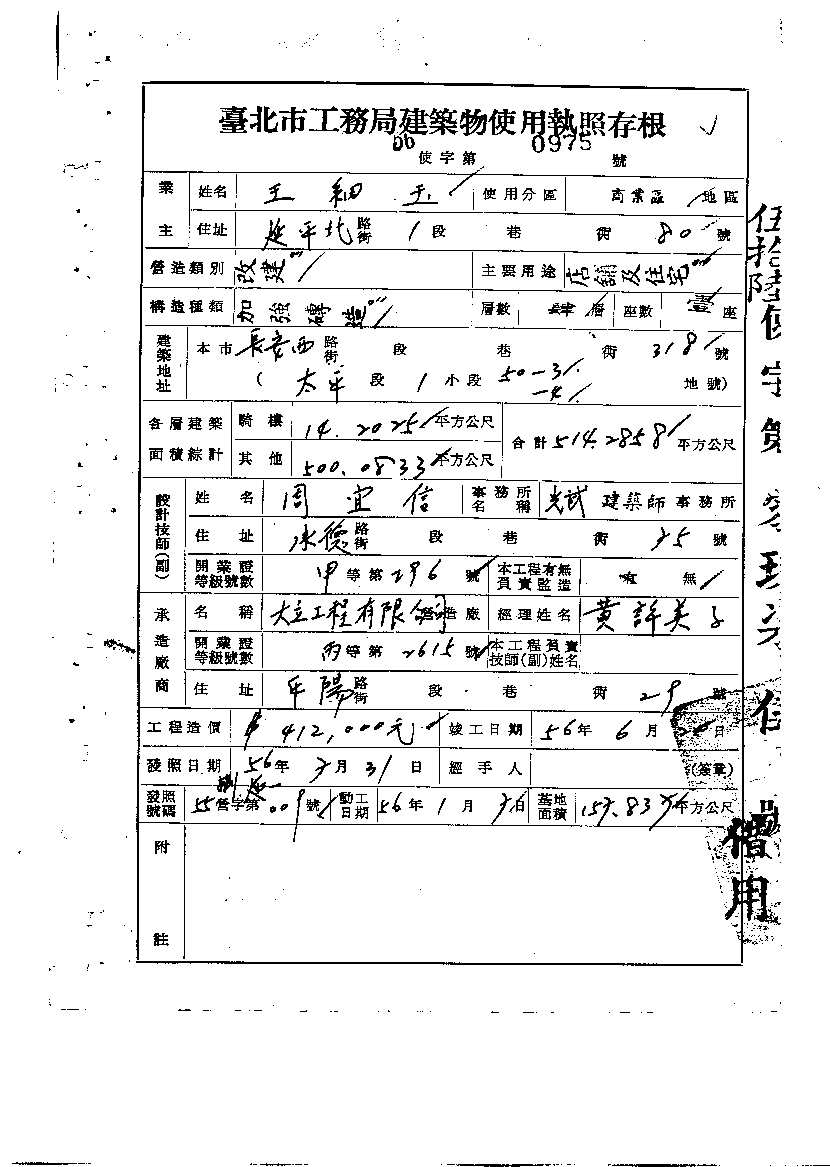 臺北市工務局建築物使用執照存根
56 使字第 0975 號
業主 姓名 王細玉 使用分區 商業區 地區
住址 延平北 路街 1 段 巷 街 80 號
營造類別 改建 主要用途 店舖及住宅
構造種類 加強磚造 層數 層 座數 座
建築地址 本市 長安西 路街 段 巷 街 318 號
( 太平 段 1 小段 50-31 -41 地號)
各層建築面積綜計 騎樓 14.2025 平方公尺 合計 514.2858 平方公尺
其他 500.0833 平方公尺
設計技師(副) 姓名 周宜信 事務所名稱 建築師事務所
住址 承德 路街 段 巷 街 75 號
開業證等級號數 甲等第 296 號 本工程有無負責監造 有 無
承造廠商 名稱 大立工程有限公司 營造廠 經理姓名 黃許美子
開業證等級號數 丙等第 2615 號 本工程負責技師(副)姓名
住址 平陽 路街 段 巷 街 29 號
工程造價 $412,000元 竣工日期 56年 6月 日
發照日期 56年 7月 31日 經手人 (簽章)
發照號碼 55 營字第 009 號 動工日期 56年 1月 日 基地面積 平方公尺
附註
伍拾陸使字第零玖
借用